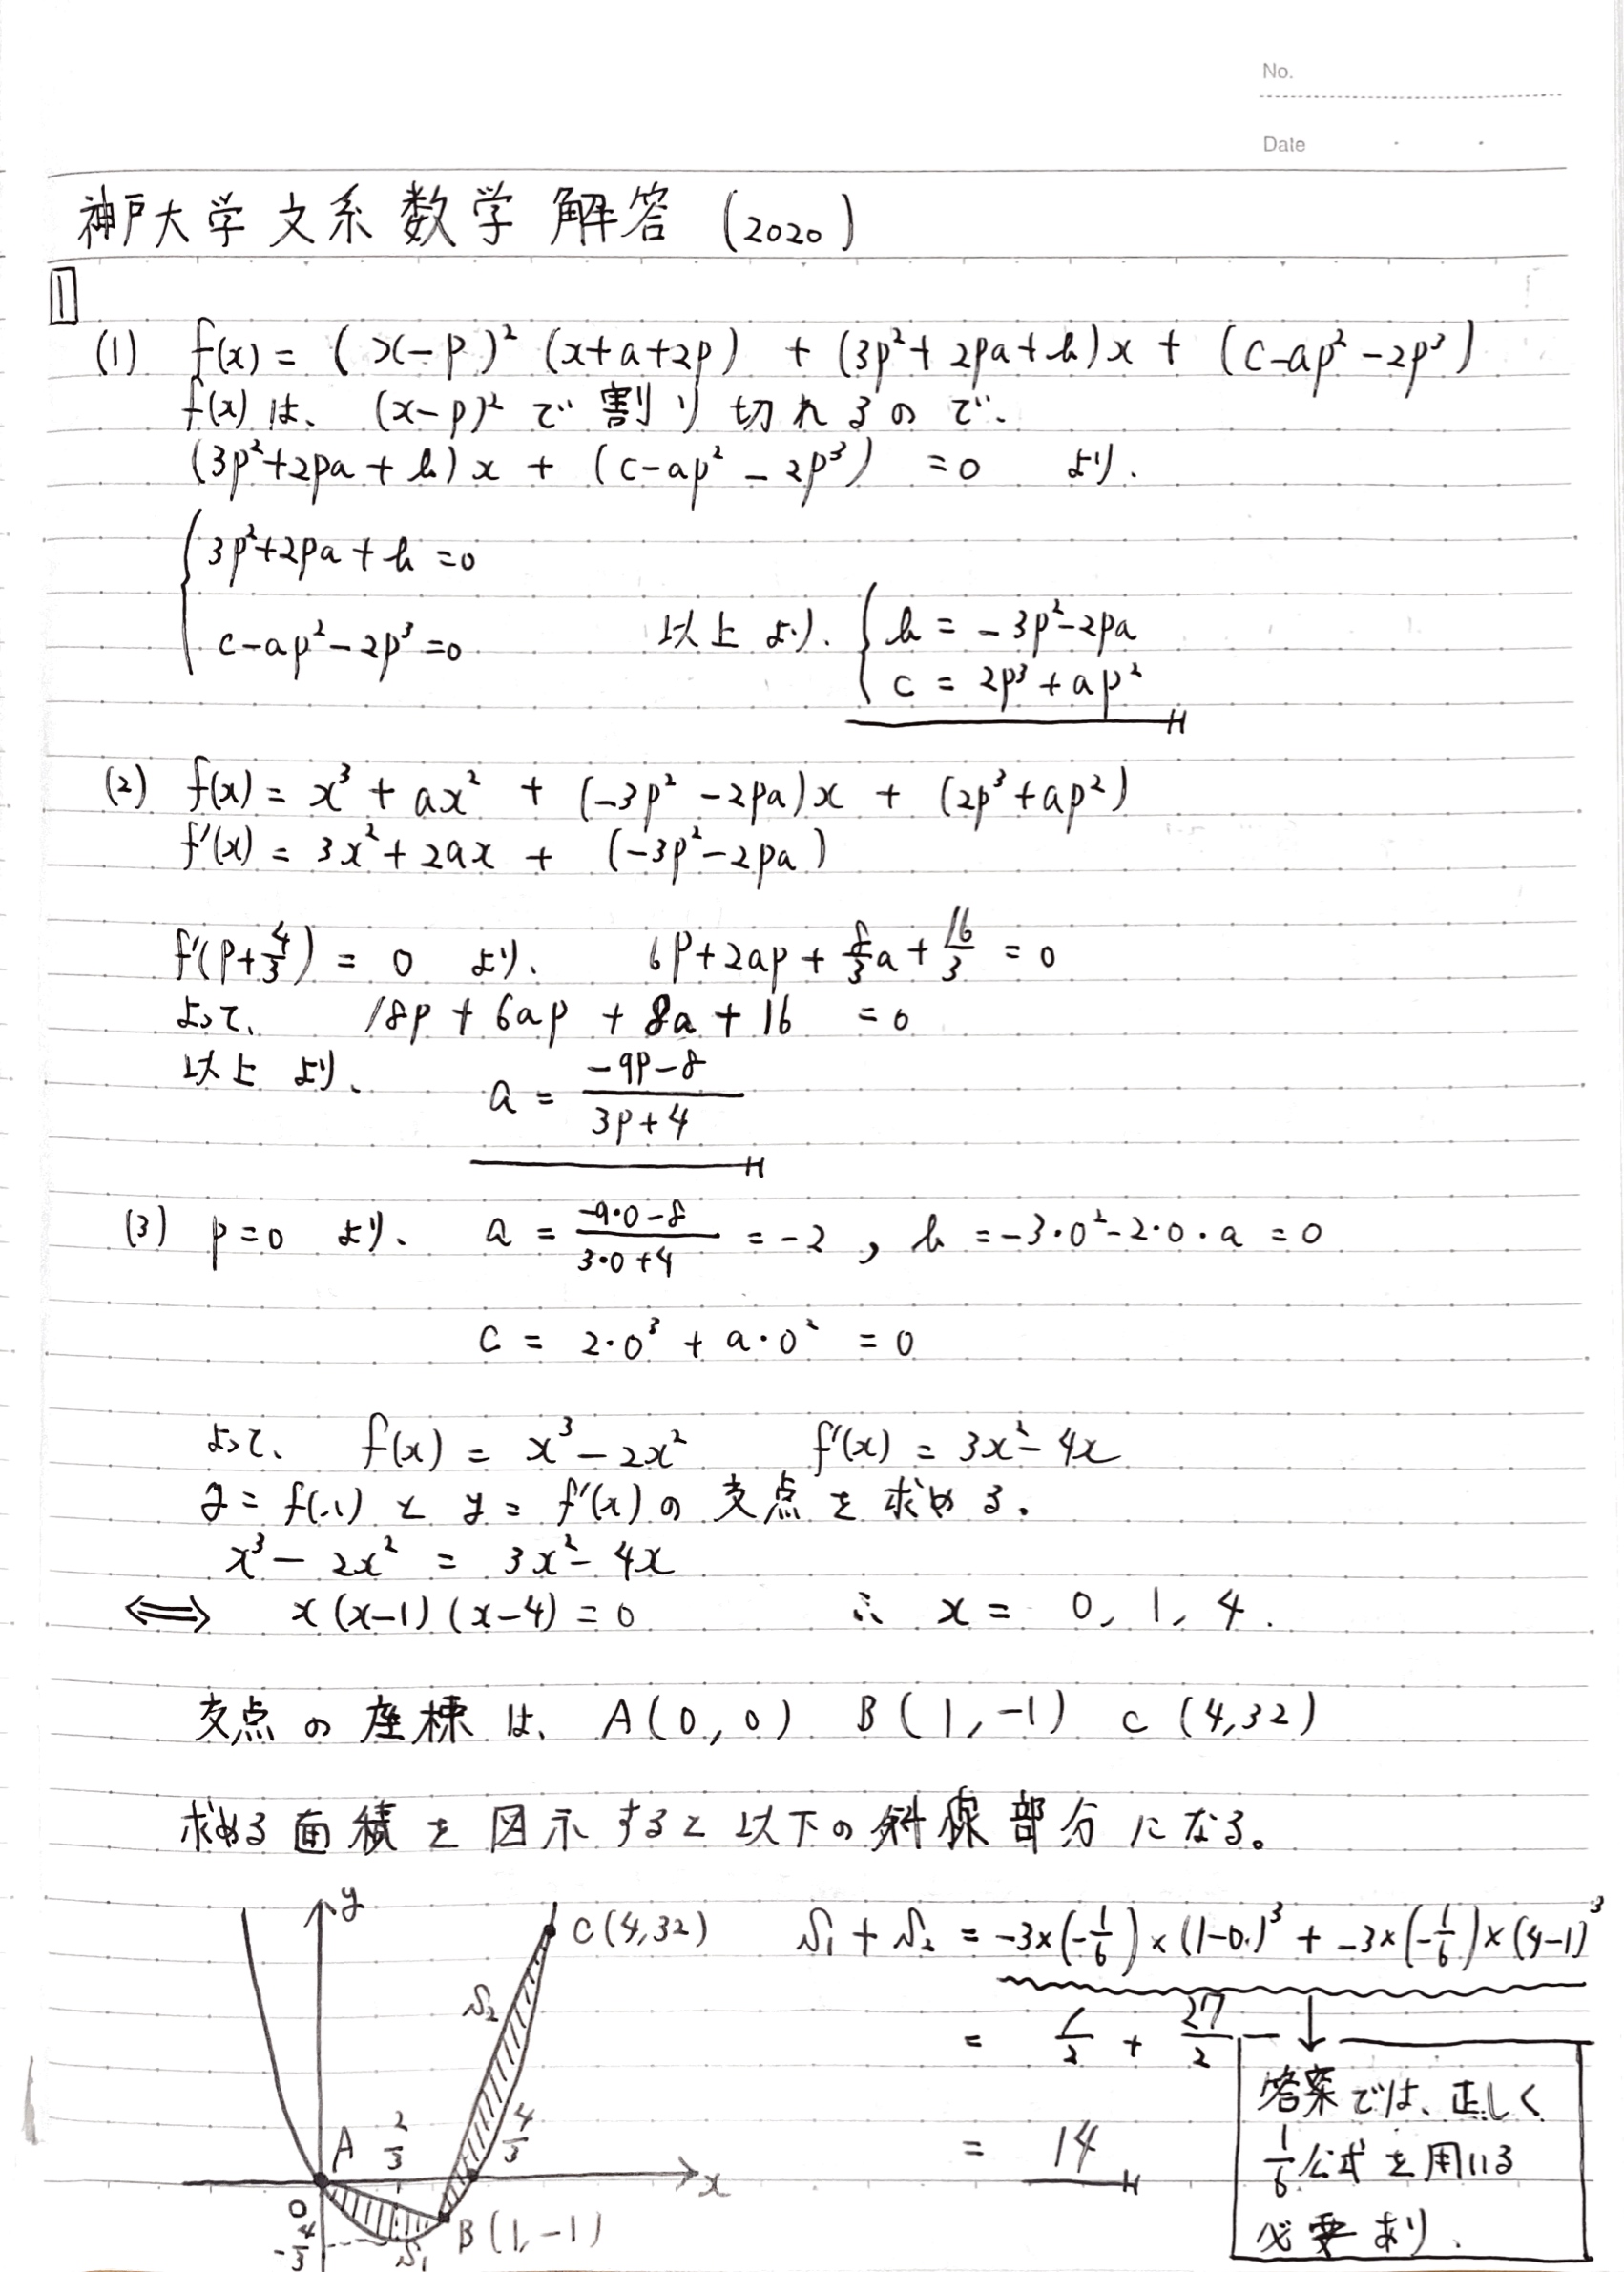 No.
Date
神戸大学文系数学 解答 (2020)
1
(1) f(x) = (x-p)² (x+a+2p) + (3p²+2pa+b)x + (c-ap²-2p³)
f(x) は、 (x-p)² で 割り切れるので、
(3p²+2pa+b)x + (c-ap²-2p³) =0 より、
{ 3p²+2pa+b=0
c-ap²-2p³=0
以上より、 { b = -3p²-2pa
c = 2p³+ap²
(2) f(x) = x³ + ax² + (-3p²-2pa)x + (2p³+ap²)
f'(x) = 3x²+2ax + (-3p²-2pa)
f'(p+4/3) = 0 より、 6p+2ap+8/3a+16/3 = 0
よって、 18p + 6ap + 8a + 16 = 0
以上より、 a = (-9p-8)/(3p+4)
(3) p=0 より、 a = (-9・0-8)/(3・0+4) = -2 , b = -3・0²-2・0・a = 0
c = 2・0³ + a・0² = 0
よって、 f(x) = x³-2x² f'(x) = 3x²-4x
y = f(x) と y = f'(x) の 交点を求める.
x³-2x² = 3x²-4x
⟺ x(x-1)(x-4)=0 ∴ x = 0, 1, 4.
交点の座標は、 A(0,0) B(1,-1) C(4,32)
求める面積を図示すると以下の斜線部分になる。
y
C(4,32)
S₂
A
2/3
4/3
x
0
-4/3
S₁
B(1,-1)
S₁ + S₂ = -3×(-1/6)×(1-0)³ + -3×(-1/6)×(4-1)³
= 1/2 + 27/2
= 14
答案では、正しく
1/6公式を用いる
必要あり.